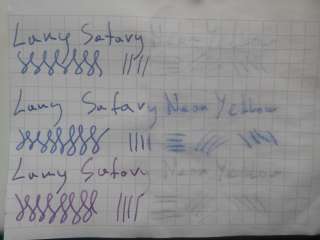 Lamy Safary
Lamy Safary Neon Yellow
Lamy Safari Neon Yellow